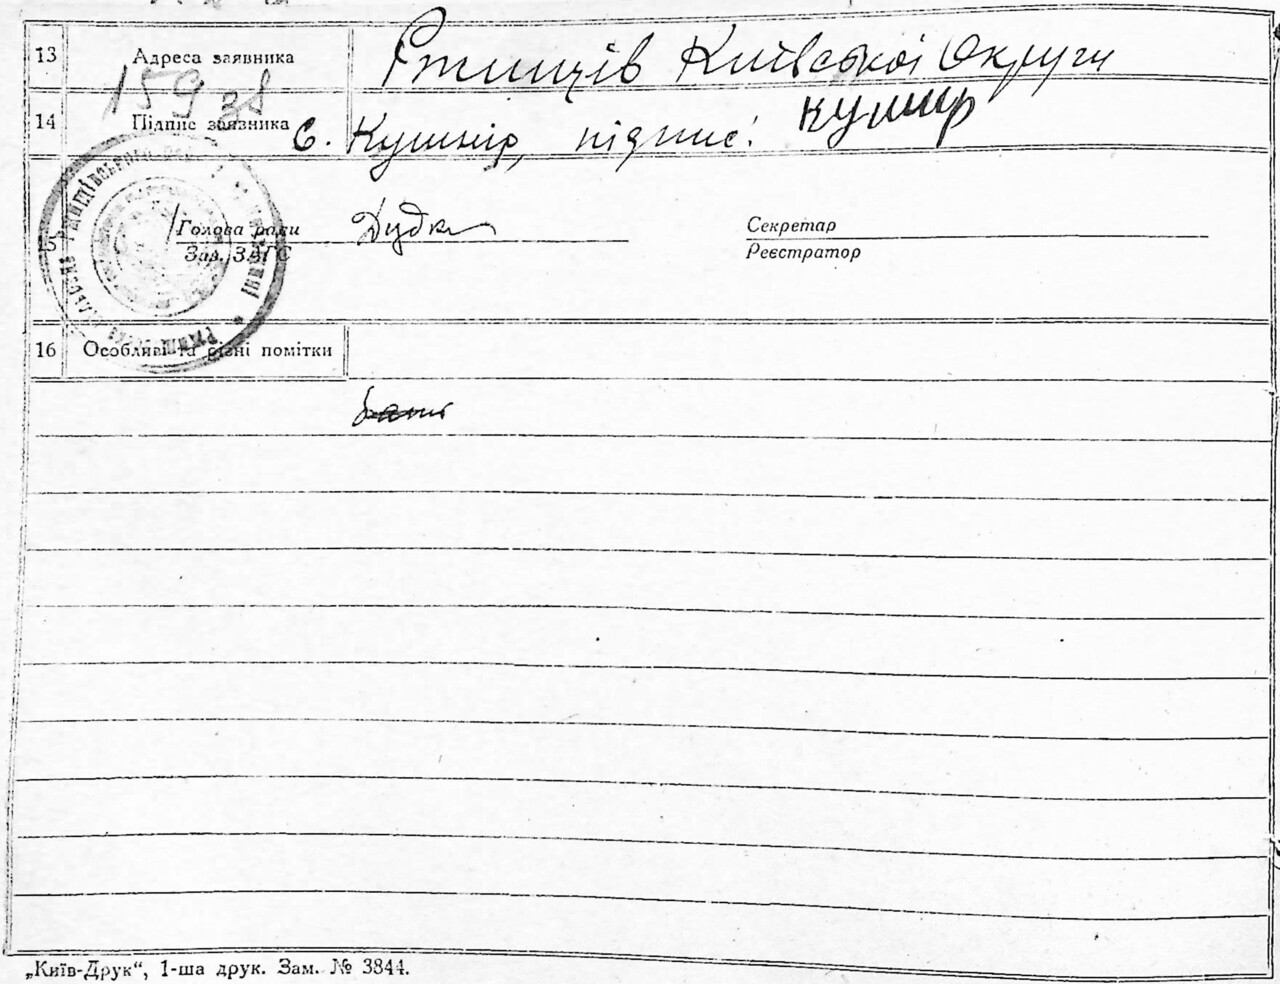 13 Адреса заявника Ржищів Київської Округи
159 38
14 Підпис заявника Є. Кушнір, підпис: Кушнір
15 Голова ради Дудка Секретар
Зав. ЗАГС Реєстратор
16 Особливі та різні помітки
„Київ-Друк“, 1-ша друк. Зам. № 3844.